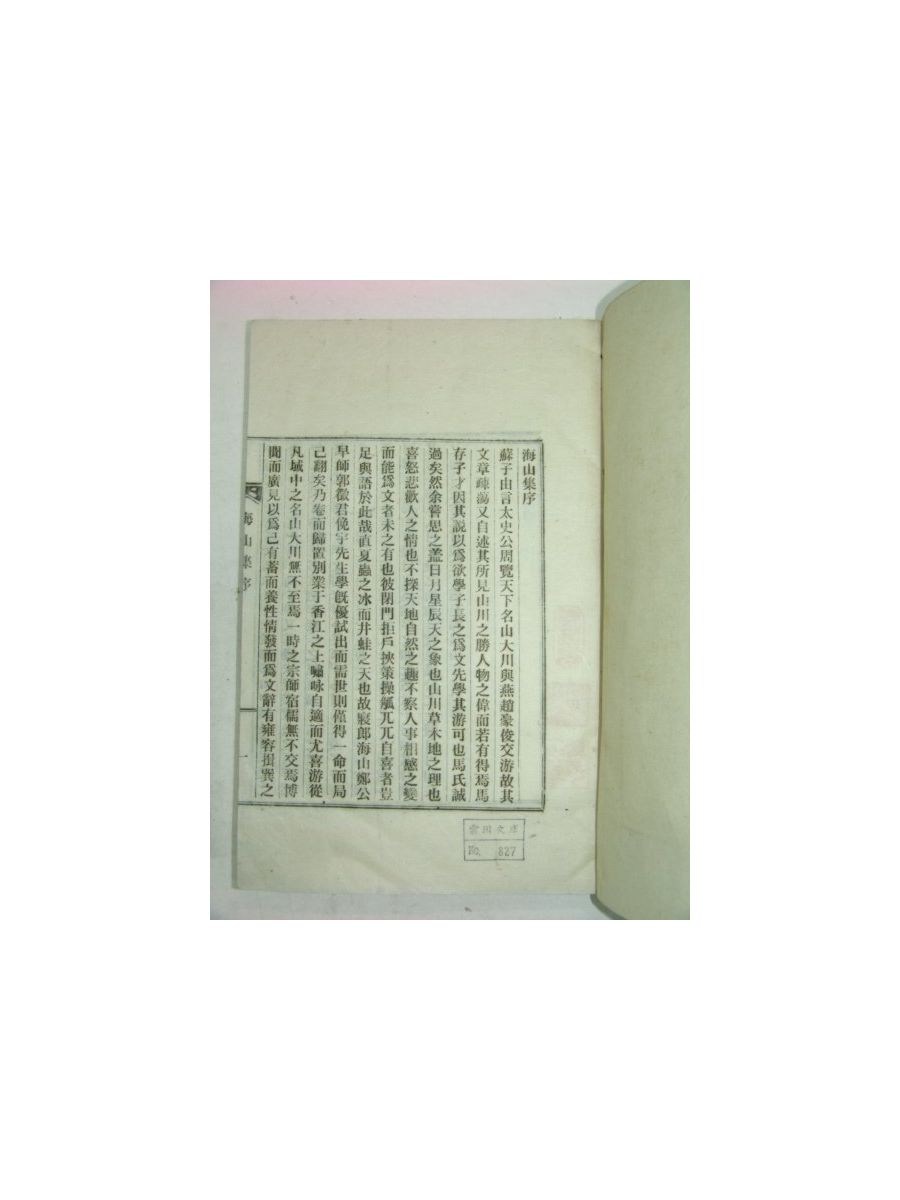 海山集序
蘇子由言太史公周覽天下名山大川與燕趙豪俊交游故其
文章疎蕩又自述其所見山川之勝人物之偉而若有得焉馬
存子才因其說以爲欲學子長之爲文先學其游可也馬氏誠
過矣然余嘗思之蓋日月星辰天之象也山川草木地之理也
喜怒悲歡人之情也不探天地自然之趣不察人事相感之變
而能爲文者未之有也彼閉門拒戶挾策操觚兀兀自喜者豈
足與語於此哉直夏蟲之冰而井蛙之天也故寢郎海山鄭公
早師郭徵君俛宇先生學旣優試出而需世則僅得一命而局
已翻矣乃卷而歸置別業于香江之上嘯咏自適而尤喜游從
凡域中之名山大川無不至焉一時之宗師宿儒無不交焉博
聞而廣見以爲己有蓄而養性情發而爲文辭有雍容揖巽之
海山集序
一
文庫
No. 827